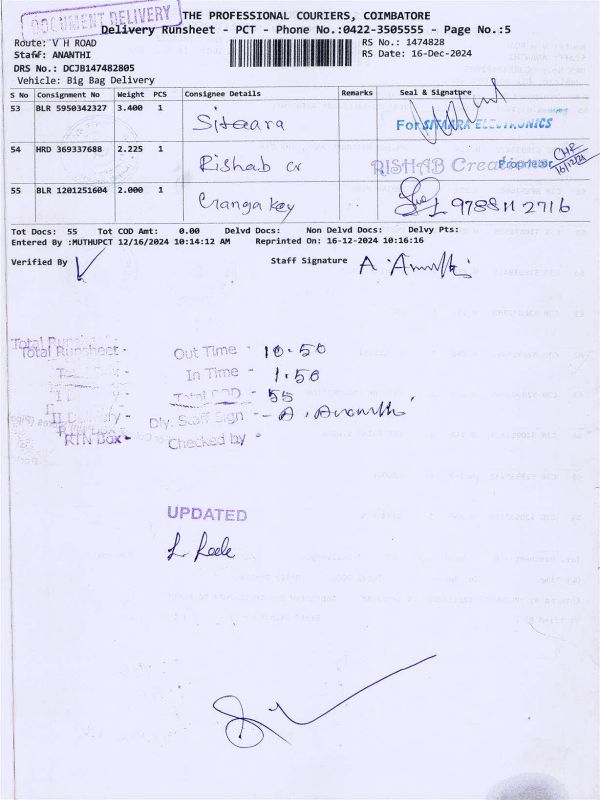 DOCUMENT DELIVERY
THE PROFESSIONAL COURIERS, COIMBATORE
Delivery Runsheet - PCT - Phone No.:0422-3505555 - Page No.:5
Route: V H ROAD
RS No.: 1474828
Staff: ANANTHI
RS Date: 16-Dec-2024
DRS No.: DCJB147482805
Vehicle: Big Bag Delivery
S No Consignment No Weight PCS Consignee Details Remarks Seal & Signature
53 BLR 5950342327 3.400 1 Sitaara For SITARA ELECTRONICS
Proprietor
54 HRD 369337688 2.225 1 Rishab cr RISHAB Creations
16/12/24
55 BLR 1201251604 2.000 1 9788112716
Tot Docs: 55 Tot COD Amt: 0.00 Delvd Docs: Non Delvd Docs: Delvy Pts:
Entered By :MUTHUPCT 12/16/2024 10:14:12 AM Reprinted On: 16-12-2024 10:16:16
Verified By Staff Signature A. Ananthi
Total Runsheet - Out Time - 10.50
In Time - 1.50
I Delivery - Total COD - 55
II Delivery - Dly. Staff Sign - A. Ananthi
RTN Dox - Checked by -
UPDATED